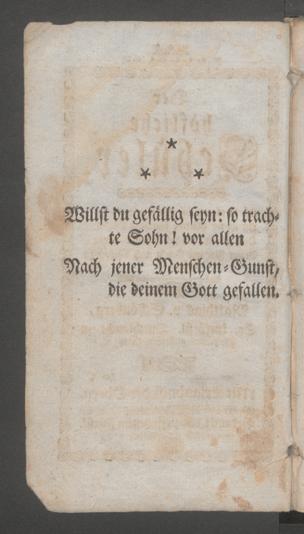 *
* *
Willst du gefällig seyn: so trach-
te Sohn! vor allen
Nach jener Menschen-Gunst,
die deinem Gott gefallen.